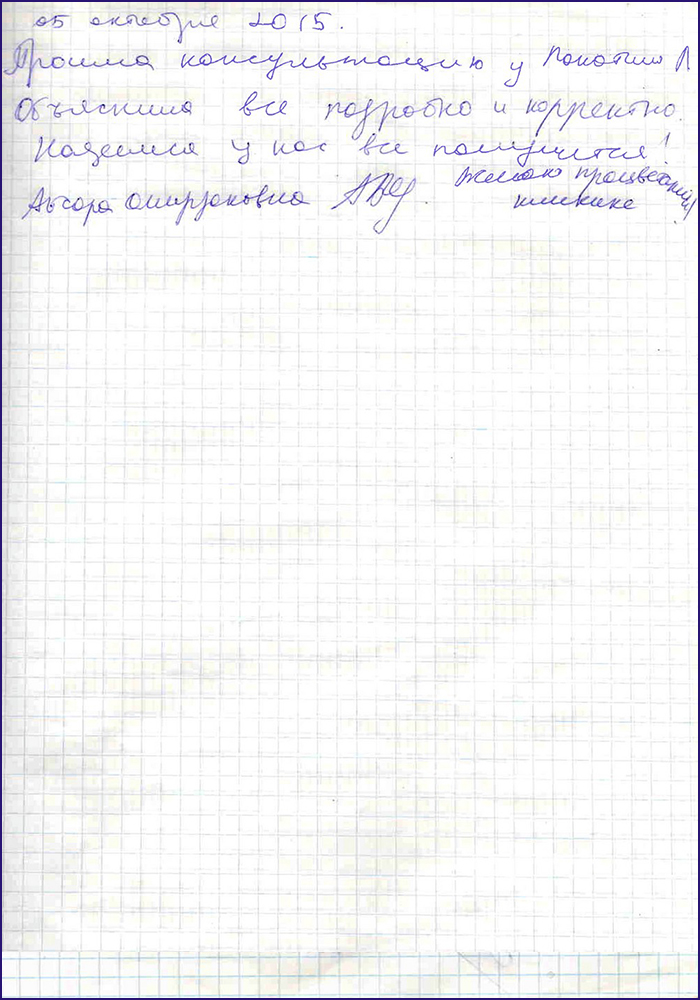 05 октября 2015.
Прошла консультацию у Покатило Л
Объяснила все подробно и корректно.
Надеемся у нас все получится!
Желаю процветания
клинике